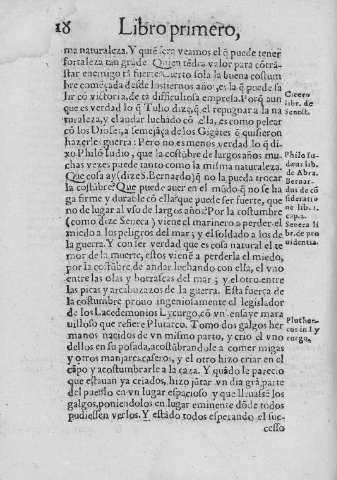 18 Libro primero,
ma naturaleza. Y quiē sera veamos el q̄ puede tener
fortaleza tan grāde. Quien tēdra valor para cōtra-
star enemigo tā fuerte. Cierto sola la buena costum
bre comēçada desde los tiernos años, es la q̄ puede sa
lir cō victoria, de tā dificultosa empresa. Porq̄ aun
que es verdad lo q̄ Tulio dize, q̄ el repugnar a la na
turaleza, y el andar luchādo cō ella, es como pelear
cō los Dioses, a semejāça de los Gigātes q̄ quisieron
hazerles guerra: Pero no es menos verdad lo q̄ di-
xo Philō Iudio, que la costūbre de largos años mu-
chas vezes puede tanto como la misma naturaleza.
Que cosa ay (dize S. Bernardo) q̄ no la pueda trocar
la costūbre? Que puede auer en el mūdo q̄ no se ha
ga firme y durable cō ella? que puede ser fuerte, que
no de lugar al vso de largos años? Por la costumbre
(como dize Seneca) viene el marinero a perder el
miedo a los peligros del mar; y el soldado a los de
la guerra. Y con ser verdad que es cosa natural el te
mor de la muerte, estos vienē a perderla el miedo,
por la costūbre de andar luchando con ella, el vno
entre las olas y borrascas del mar; y el otro entre
las picas y arcabuzazos de la guerra. Esta fuerça de
la costumbre prouo ingeniosamente el legislador
de los Lacedemonios Lycurgo, cō vn ensaye mara
uilloso que refiere Plutarco. Tomo dos galgos her
manos nacidos de vn mismo parto, y crio el vno
dellos en su posada, acostūbrādole a comer migas
y otros manjares caseros, y el otro hizo criar en el
cāpo y acostumbrarle a la caza. Y quādo le parecio
que estauan ya criados, hizo jūtar vn dia grā parte
del pueblo en vn lugar espacioso y que lleuassē los
galgos, poniendolos en lugar eminente dōde todos
pudiessen verlos. Y estādo todos esperando el suc-
cesso
Cicero
libr. de
Senect.
Philo Iu
dæus lib.
de Abra.
Bernar-
dus de cō
sideratio
ne libr. 1.
Seneca li
br. de pro
uidentia.
Plutharcus
in Ly
curgo.